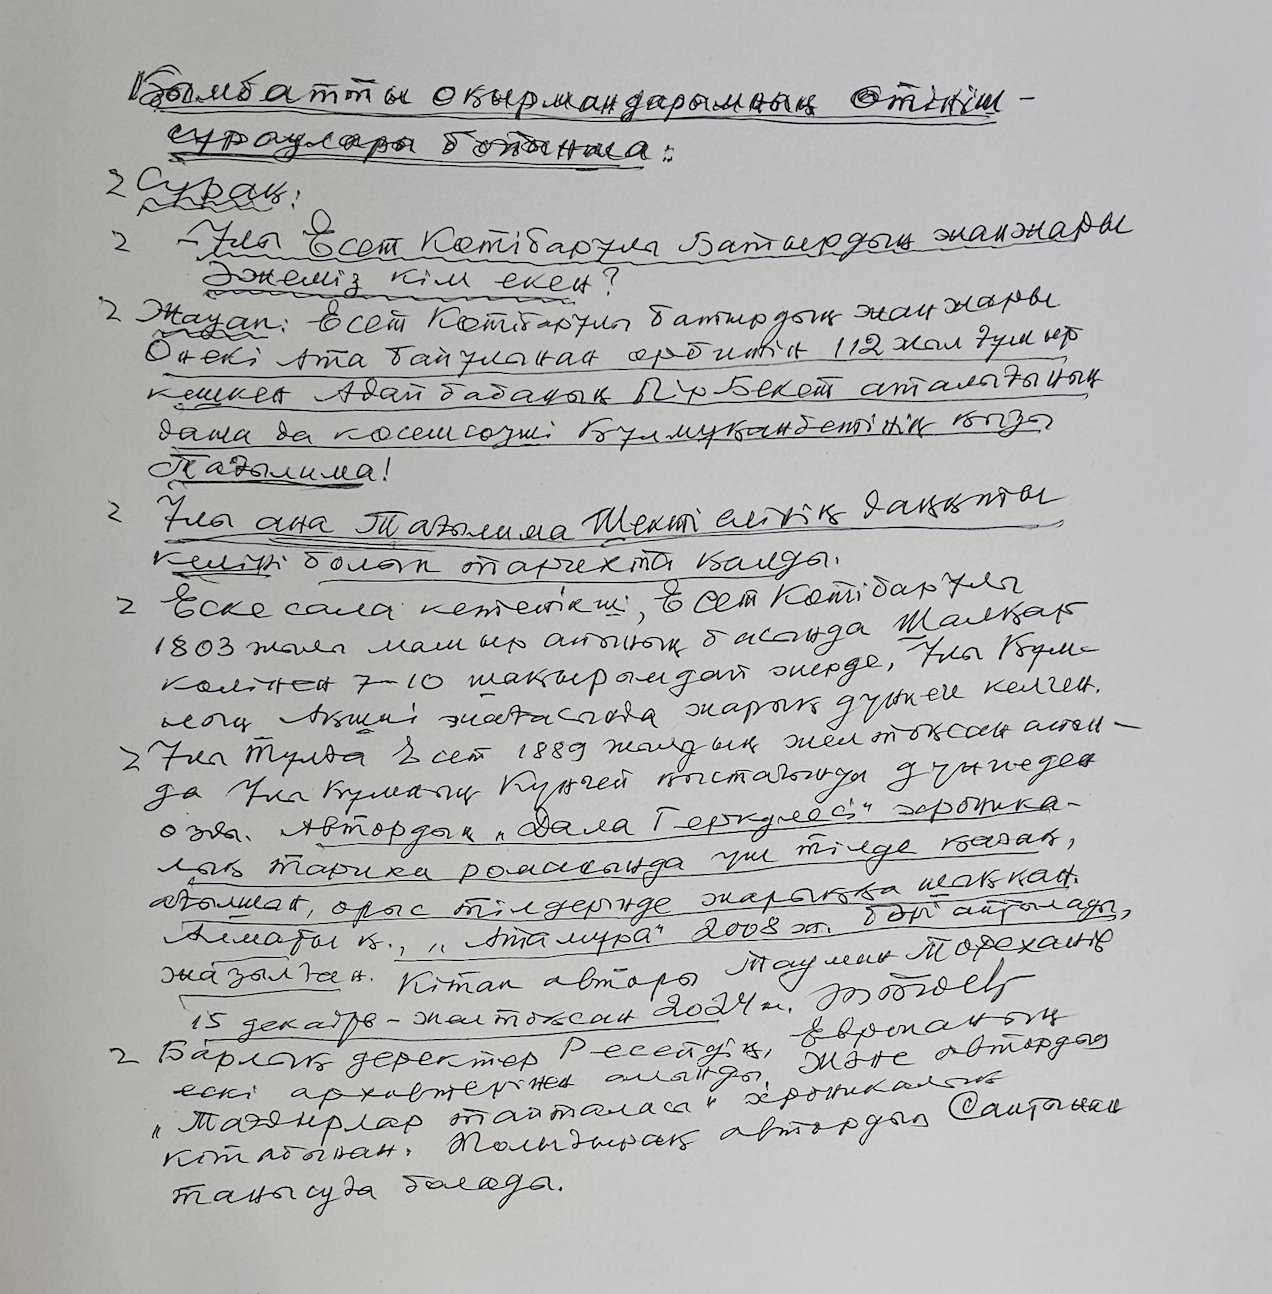 Қымбатты оқырмандарымның өтініш -
сұраулары бойынша:
Сұрақ:
- Ұлы Есет Көтібарұлы Батырдың жанжары
Әжеміз кім екен?
Жауап: Есет Көтібарұлы батырдың жанжары
Он екі Ата байұлынан өрбитін 112 жыл ғұмыр
кешкен Адай бабаның Пір Бекет аталығының
дана да көсем сөзші Құлмұқанбетінің қызы
Тағылима!
Ұлы ана Тағылима Шекті елінің даңқты
келіні болып тарихта қалды.
Еске сала кететікші, Есет Көтібарұлы
1803 жылы мамыр айының басында Шалқар
көлінен 7-10 шақырымдай жерде, Ұлы Құм-
ның Ақши жағасында жарық дүниеге келген.
Ұлы Тұлға Есет 1889 жылдың желтоқсан айын-
да Ұлы Құмның Күнгей қыстағында дүниеден
озды. Автордың „Дала Геркулесі" хроника-
лық тарихи романында үш тілде қазақ,
ағылшын, орыс тілдерінде жарыққа шыққан.
Алматы қ., „Атамұра" 2008 ж. бәрі айтылады,
жазылған. Кітап авторы Тауман Төреханов
15 декабрь - желтоқсан 2024 ж.
Барлық деректер Ресейдің, Европаның
ескі архивтерінен алынды. Және автордың
„Тағдырлар тайталасы" хроникалық
кітабынан. Толығырақ автордың Сайтынан
танысуға болады.